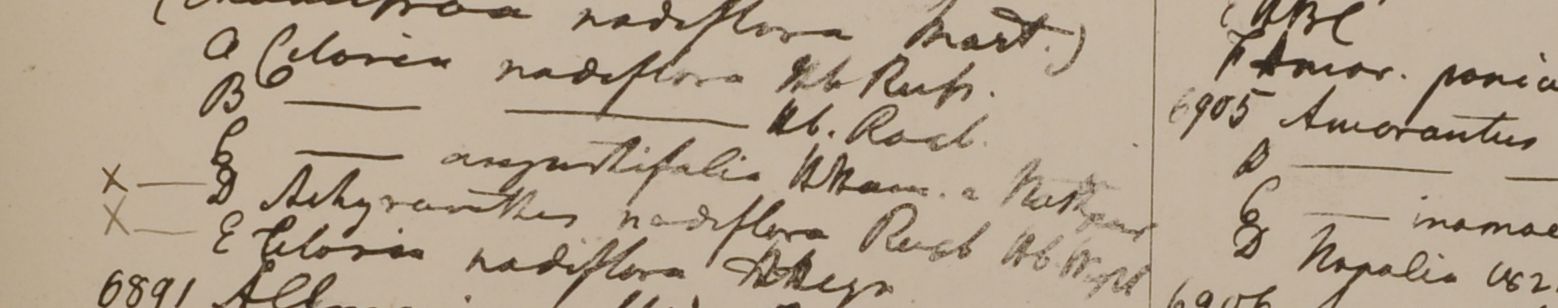 nodiflora Mart.)
A Celosia nodiflora Hb Russ.
B — — Hb. Roxb.
C — angustifolia HHam. a
X — D Achyranthes nodiflora Roxb Hb Wight
X — E Celosia nodiflora HHeyn
6891
(HBC
F Amar. panic
6905 Amarantus
B — —
C — inamoe
D Napalia 182
6906